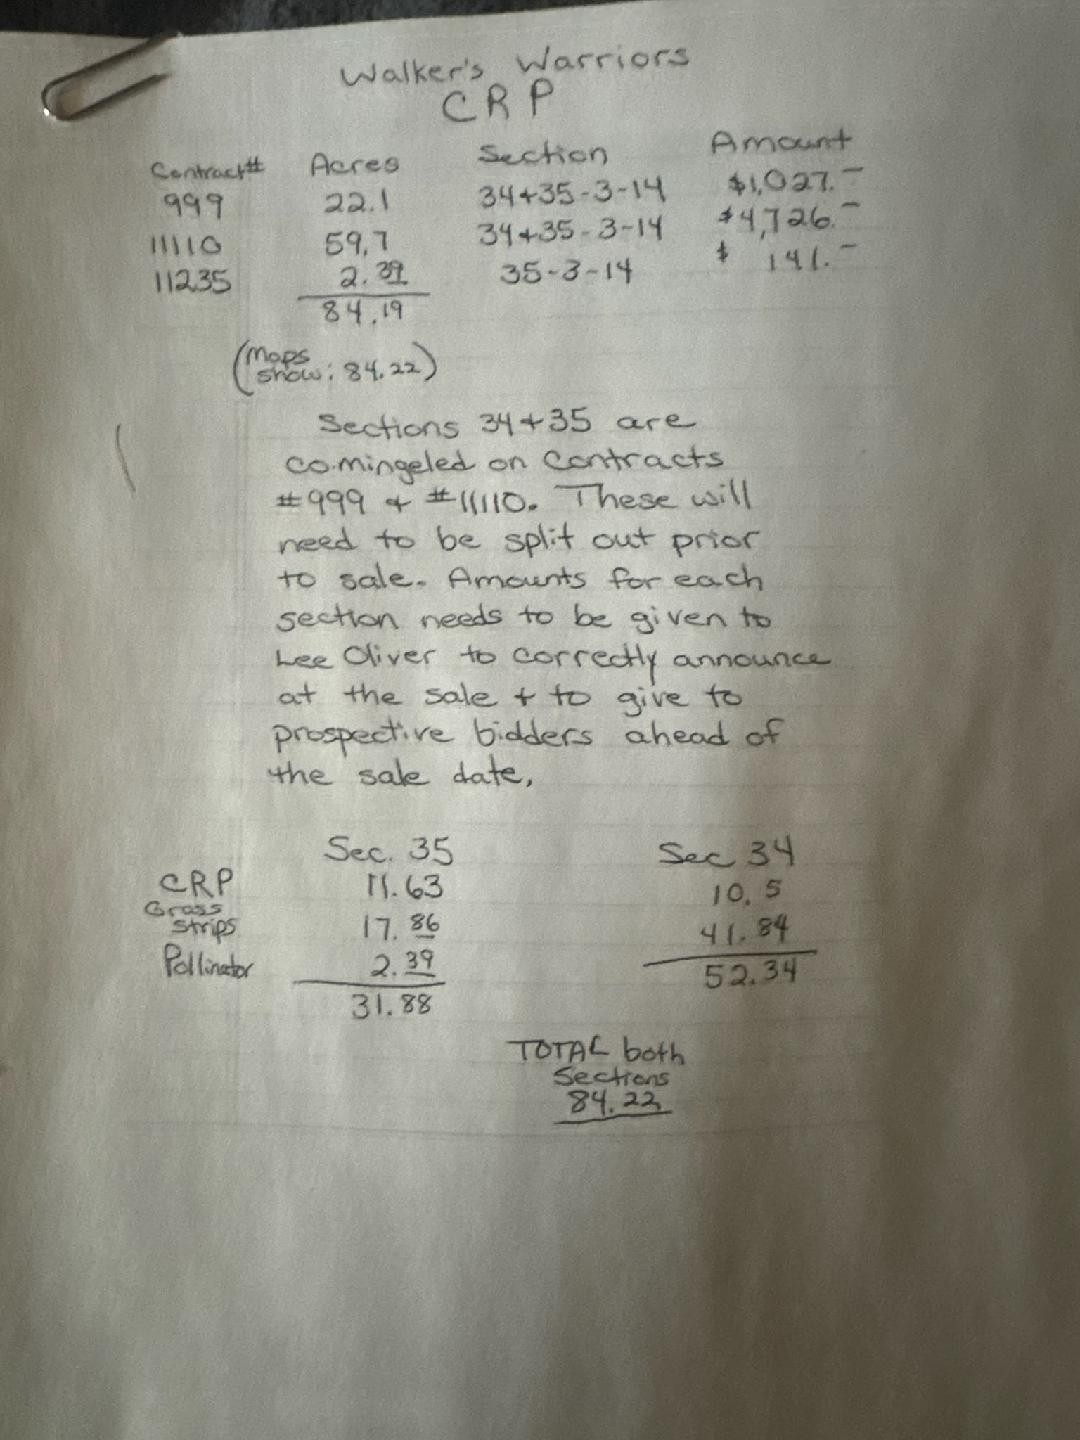 Walker's Warriors
CRP
Contract# Acres Section Amount
999 22.1 34+35-3-14 $1,027.-
11110 59,7 34+35-3-14 $4,726.-
11235 2.39 35-3-14 $ 141.-
84.19
(Maps
show: 84.22)
Sections 34+35 are
co.mingeled on contracts
#999 + #11110. These will
need to be split out prior
to sale. Amounts for each
section needs to be given to
Lee Oliver to correctly announce
at the sale + to give to
prospective bidders ahead of
the sale date,
Sec. 35 Sec 34
CRP 11.63 10.5
Grass
strips 17.86 41.84
Pollinator 2.39
31.88 52.34
TOTAL both
Sections
84.22